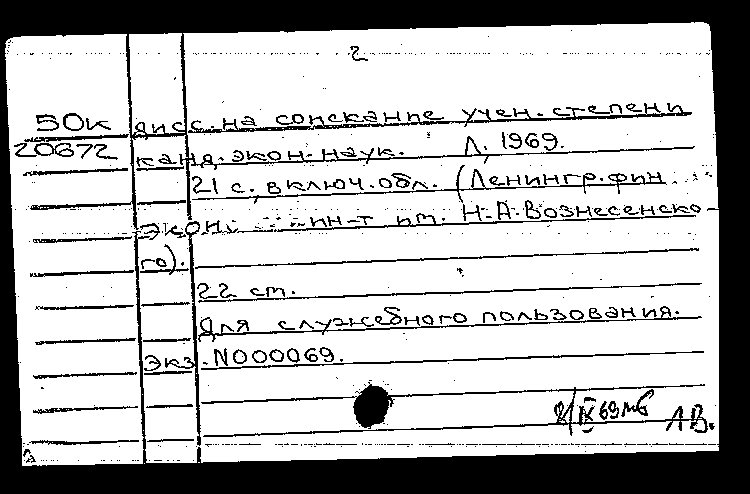 2
50к дисс. на соискание учен. степени
20672 канд. экон. наук. Л., 1969.
21 с., включ. обл. (Ленингр. фин.
экон. ин-т им. Н.А. Вознесенско-
го).
22 ст.
Для служебного пользования.
Экз. N000069.
ЛВ.